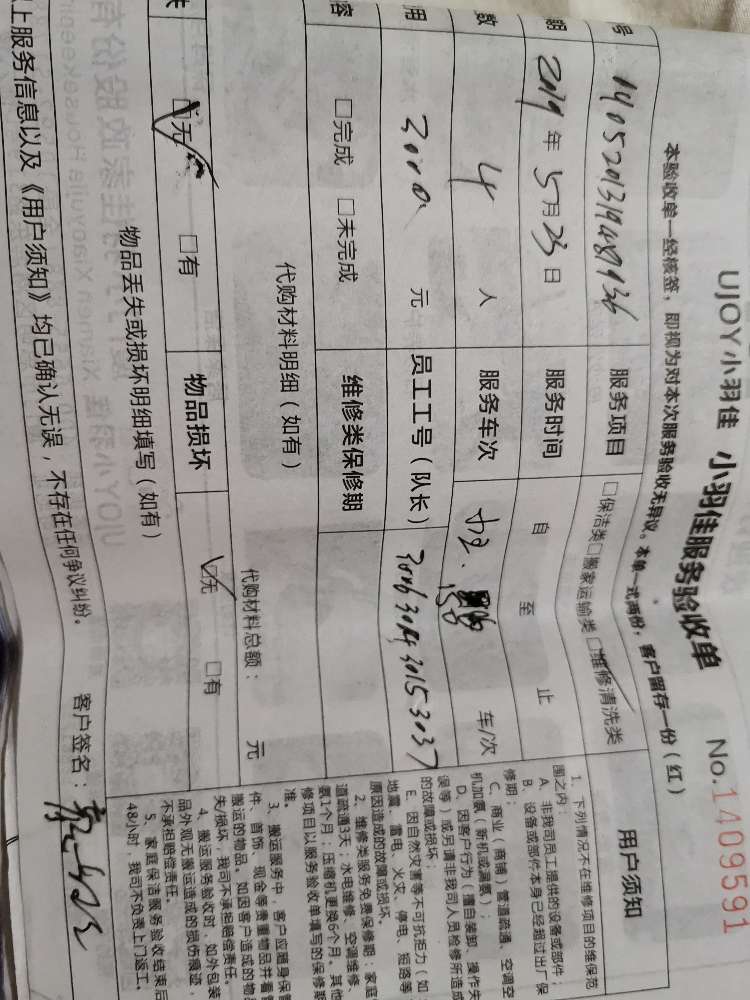 UJOY小羽佳 小羽佳服务验收单 No.1409591
本验收单一经核签，即视为对本次服务验收无异议。本单一式两份，客户留存一份（红）
号 服务项目 □保洁类□搬家运输类□维修清洗类
期 2019年5月23日 服务时间 自 至 止
数 4 人 服务车次 车/次
用 元 员工工号（队长）
容 □完成 □未完成 维修类保修期
代购材料明细（如有） 代购材料总额： 元
失 □无 □有 物品损坏 □无 □有
物品丢失或损坏明细填写（如有）
上服务信息以及《用户须知》均已确认无误，不存在任何争议纠纷。 客户签名：
用户须知
1、下列情况不在维修项目的维保范
围之内：
A、非我司员工提供的设备或部件；
B、设备或部件本身已经超过出厂保
修期；
C、商业（商铺）管道疏通、空调空
机加氨（新机或漏氨）；
D、因客户行为（擅自装卸、操作失
误等）或另请非我司人员检修所造成
的故障或损坏；
E、因自然灾害等不可抗拒力（如
地震、雷电、火灾、停电、短路等
原因造成的故障或损坏。
2、维修类服务免费保修期，家庭
道疏通3天；水电维修、空调维修
氨1个月；压缩机更换6个月。其他
修项目以服务验收单填写的保修期
准。
3、搬运服务中，客户应随身保管
件、首饰、现金等贵重物品并看管
搬运的物品。如因客户造成的物品
失损坏，我司不承担赔偿责任。
4、搬运服务验收时，如外包装
品外观无搬运造成的损伤痕迹，
不承担赔偿责任。
5、家庭保洁服务验收结束后
48小时，我司不负责上门返工。